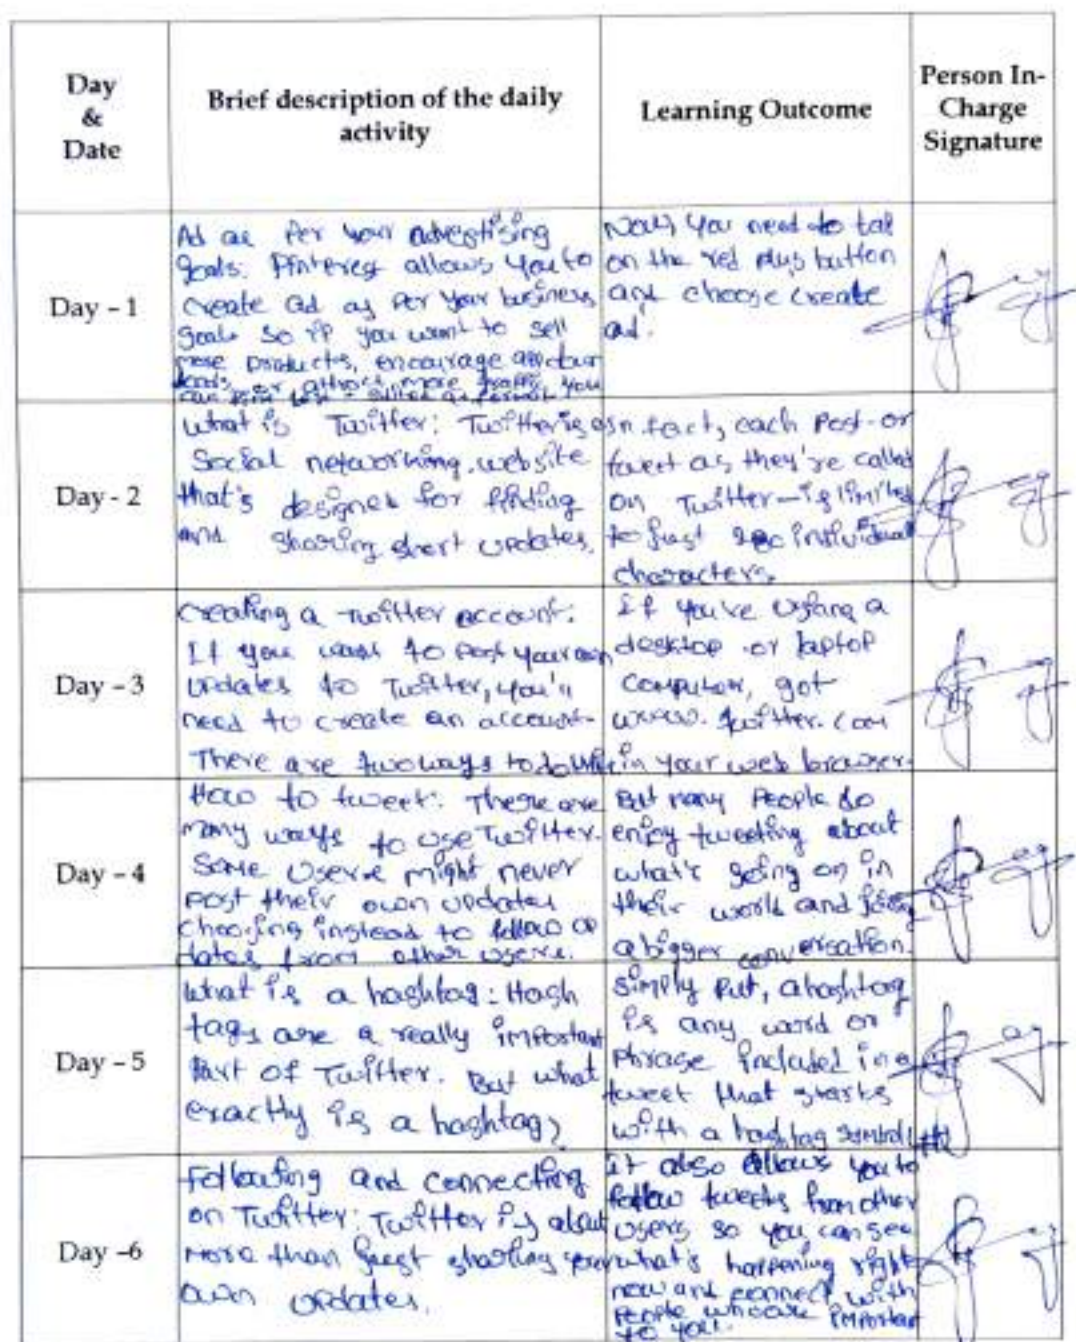 Day
&
Date
Brief description of the daily
activity
Learning Outcome
Person In-
Charge
Signature
Day - 1
Ad as Per your advertising
goals: Pinterest allows you to
create ad as Per your business
goals so if you want to sell
more products, encourage
or attract more traffic you
can
Now, you need to tap
on the red plus button
and choose create
ad.
Day - 2
What is Twitter: Twitter is a
Social networking website
that's designed for finding
and sharing short updates.
In fact, each Post-or
tweet as they're called
on Twitter-is limited
to just 280 individual
characters.
Day - 3
Creating a Twitter account:
If you want to Post your own
updates to Twitter, you'll
need to create an account-
There are two ways to do this
If you're using a
desktop or laptop
computer, got
www.twitter.com
in your web browser.
Day - 4
How to tweet: There are
many ways to use Twitter.
Some users might never
post their own updates
choosing instead to follow up
dates from other users.
But many People do
enjoy tweeting about
what's going on in
their world and
a bigger conversation.
Day - 5
What is a hashtag: Hash
tags are a really important
Part of Twitter. But what
exactly is a hashtag?
Simply Put, a hashtag
is any word or
Phrase included in a
tweet that starts
with a hashtag symbol (#)
Day -6
Following and connecting
on Twitter: Twitter is about
More than just sharing your
own updates.
It also allows you to
follow tweets from other
users so you can see
what's happening right
now and connect with
People who are important
to you.